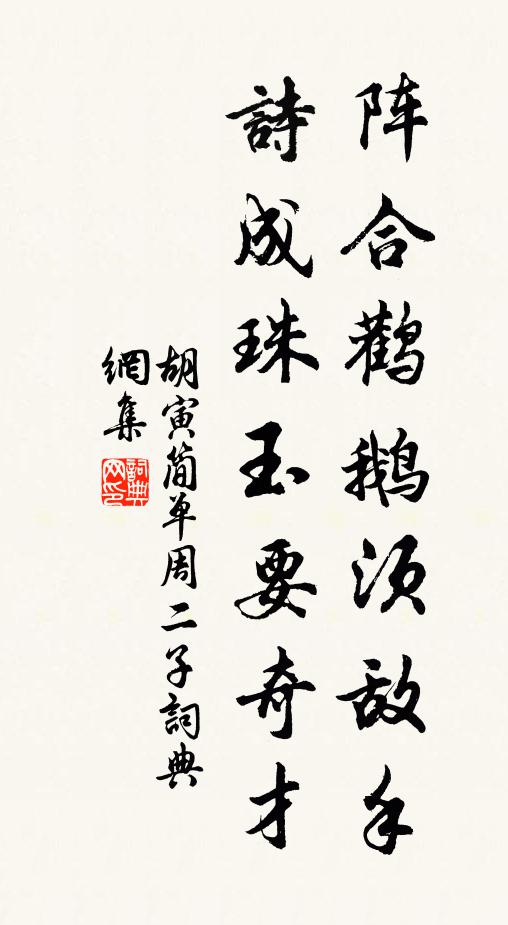 阵合鹳鹅须敌手
詩成珠玉要奇才
胡寅简单周二子詞典
網集
詞典
网印